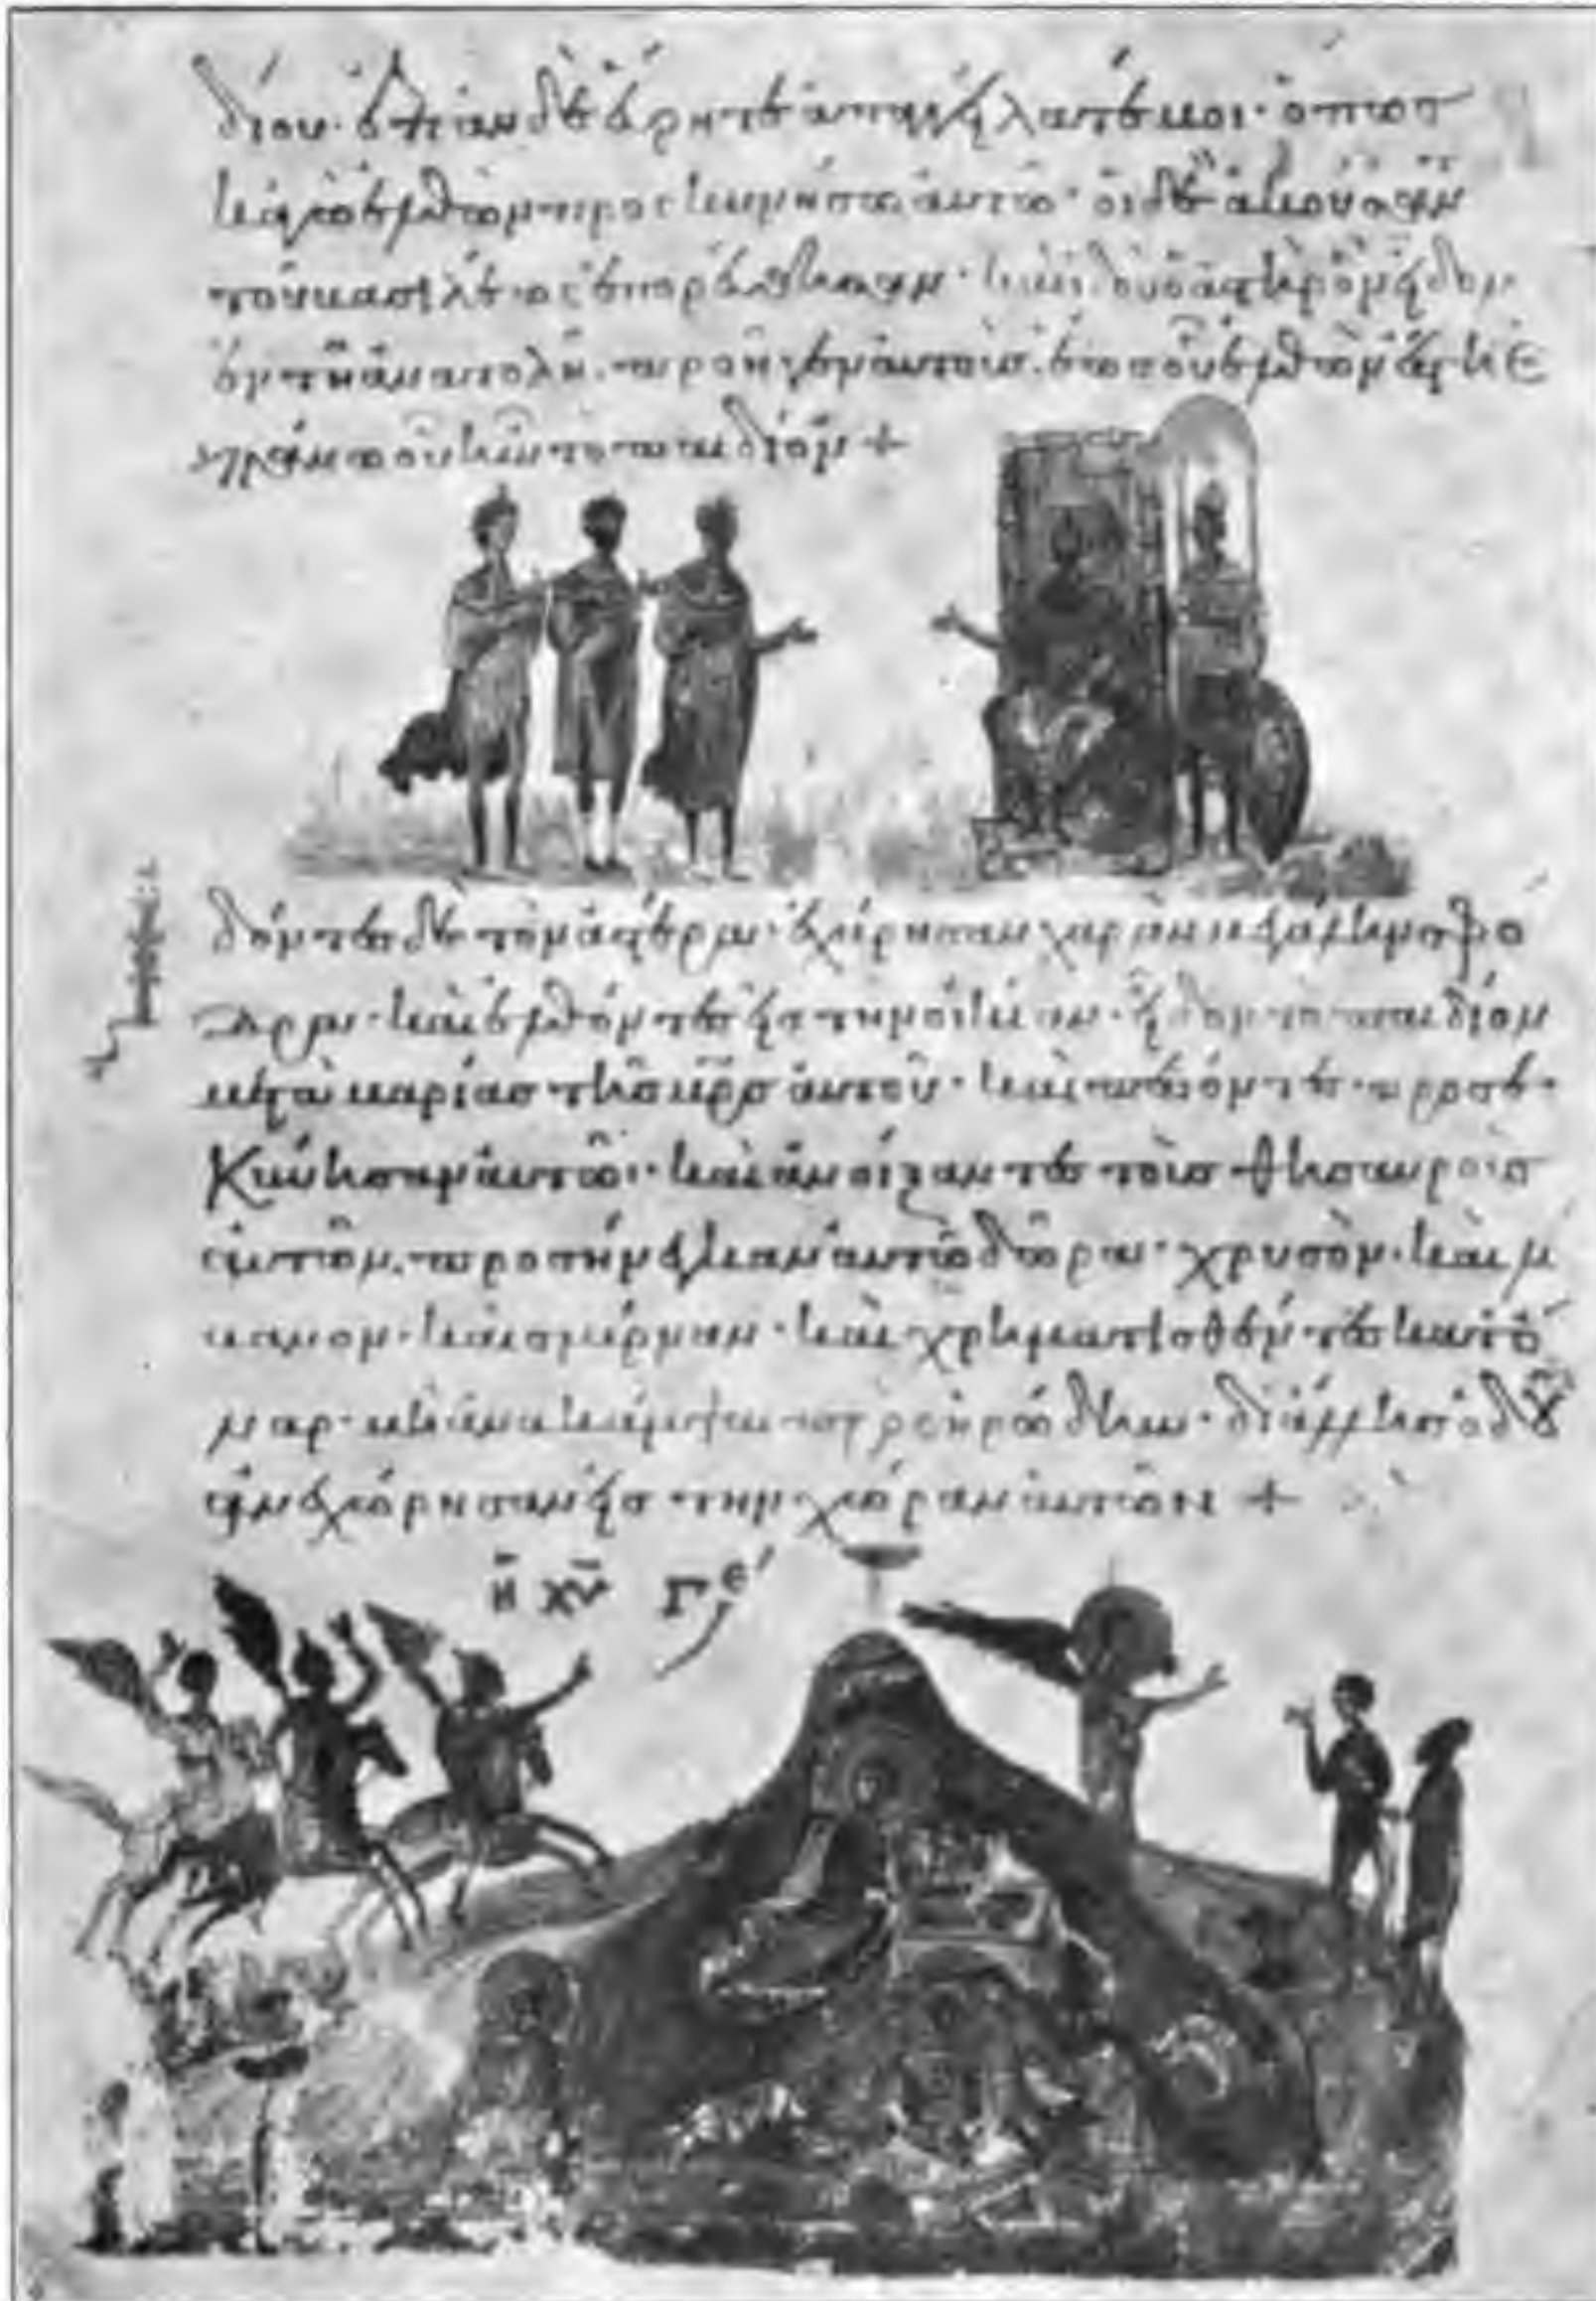 δίου· ἐπὰν δὲ εὕρητε ἀπαγγείλατέ μοι· ὅπως
κἀγὼ ἐλθὼν προσκυνήσω αὐτῶ· οἱ δὲ ἀκούσαντ
τοῦ βασιλέως ἐπορεύθησαν· καὶ ἰδοὺ ὁ ἀστὴρ ὃν εἶδον
ἐν τῆ ἀνατολῆ· προῆγεν αὐτούς· ἕως οὗ ἐλθὼν ἔστη ἐ
πάνω οὗ ἦν τὸ παιδίον +
δόντες δὲ τὸν ἀστέρα· ἐχάρησαν χαρὰν μεγάλην σφό
δρα· καὶ ἐλθόντες εἰς τὴν οἰκίαν· εἶδον τὸ παιδίον
μετὰ μαρίας τῆς μρς αὐτοῦ· καὶ πεσόντες προσε
κύνησαν αὐτῶ· καὶ ἀνοίξαντες τοὺς θησαυροὺς
αὐτῶν· προσήνεγκαν αὐτῶ δῶρα· χρυσὸν· καὶ λί
βανον· καὶ σμύρναν· καὶ χρηματισθέντες κατ' ὄ
ναρ· μὴ ἀνακάμψαι πρὸς ἡρώδην· δι' ἄλλης ὁδοῦ
ἀνεχώρησαν εἰς τὴν χώραν αὐτῶν +
Η ΧΥ ΓΕ